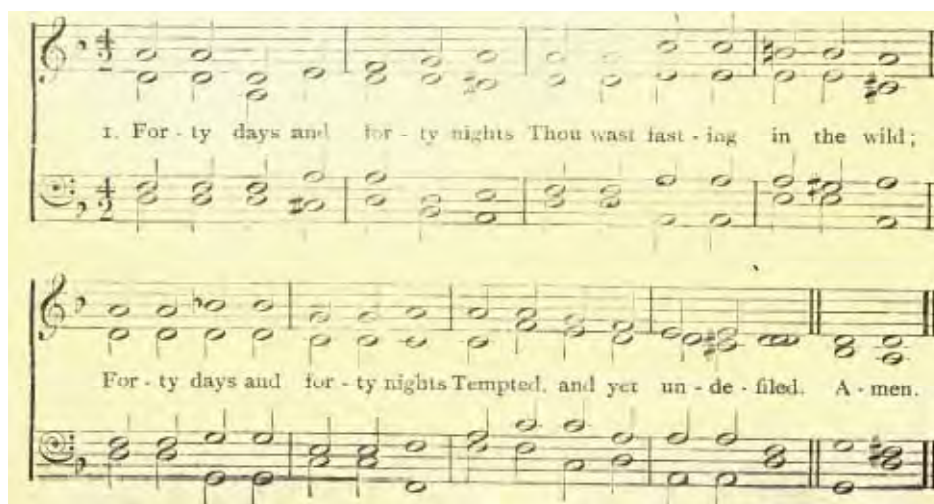 1. For - ty days and for - ty nights Thou wast fast - ing in the wild;
For - ty days and for - ty nights Tempted, and yet un - de - filed. A - men.